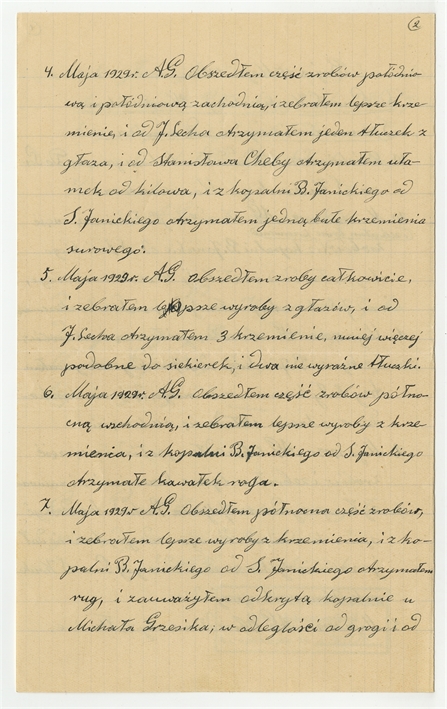 2
4. Maja 1929r. A.G. Obszedłem część zrobów połódnio
wą i połódniową zachodnią, i zebrałem lepsze krze-
mienie, i od J. Lecha otrzymałem jeden tłuczek z
głaza, i od Stanisława Cheby otrzymałem uła-
mek od kilowa, i z kopalni B. Janickiego od
S. Janickiego otrzymałem jedną bułe krzemienia
surowego.
5. Maja 1929r. A.G. obszedłem zroby całkowicie,
i zebrałem lepsze wyroby z głazów, i od
J. Lecha otrzymałem 3 krzemienie, mniej więcej
podobne do siekierek, i dwa nie wyraźne tłuczki.
6. Maja 1929r. A.G. Obszedłem część zrobów półno-
cną wschodnią, i zebrałem lepsze wyroby z krze-
mienia, i z kopalni B. Janickiego od S. Janickiego
otrzymałe kawałek roga.
7. Maja 1929r A.G. Obszedłem północna część zrobów,
i zebrałem lepsze wyroby z krzemienia, i z ko-
palni B. Janickiego od S. Janickiego otrzymałem
rug, i zauważyłem odkrytą kopalnie u
Michała Grzesika; w odległości od grogi i od